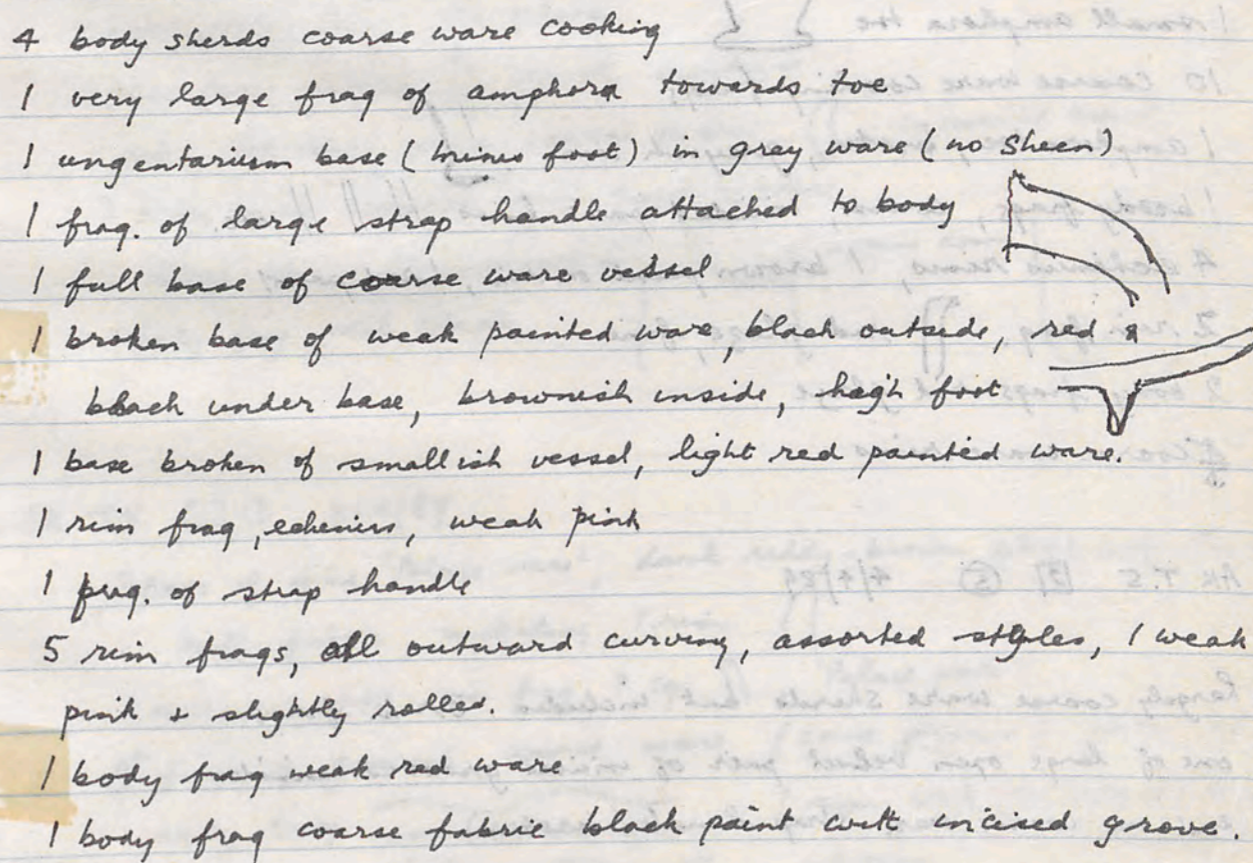 4 body sherds coarse ware cooking
1 very large frag of amphora towards toe
1 ungentarium base (minus foot) in grey ware (no sheen)
1 frag. of large strap handle attached to body
1 full base of coarse ware vessel
1 broken base of weak painted ware, black outside, red &
black under base, brownish inside, high foot
1 base broken of smallish vessel, light red painted ware.
1 rim frag, echinus, weak pink
1 frag. of strap handle
5 rim frags, all outward curving, assorted styles, 1 weak
pink + slightly rolled.
1 body frag weak red ware
1 body frag coarse fabric black paint with incised grove.